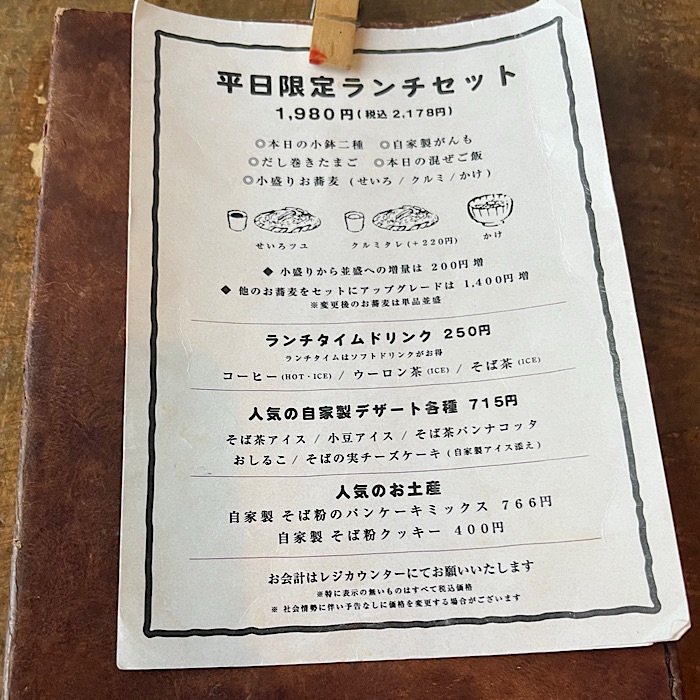 平日限定ランチセット
1,980円(税込 2,178円)
◎本日の小鉢二種 ◎自家製がんも
◎だし巻きたまご ◎本日の混ぜご飯
◎小盛りお蕎麦 (せいろ / クルミ / かけ)
せいろツユ クルミタレ(+220円) かけ
◆ 小盛りから並盛への増量は 200円 増
◆ 他のお蕎麦をセットにアップグレードは 1,400円 増
※変更後のお蕎麦は単品並盛
ランチタイムドリンク 250円
ランチタイムはソフトドリンクがお得
コーヒー (HOT・ICE) / ウーロン茶 (ICE) / そば茶 (ICE)
人気の自家製デザート各種 715円
そば茶アイス / 小豆アイス / そば茶パンナコッタ
おしるこ / そばの実チーズケーキ (自家製アイス添え)
人気のお土産
自家製 そば粉のパンケーキミックス 766円
自家製 そば粉クッキー 400円
お会計はレジカウンターにてお願いいたします
※特に表示の無いものはすべて税込価格
※ 社会情勢に伴い予告なしに価格を変更する場合がございます